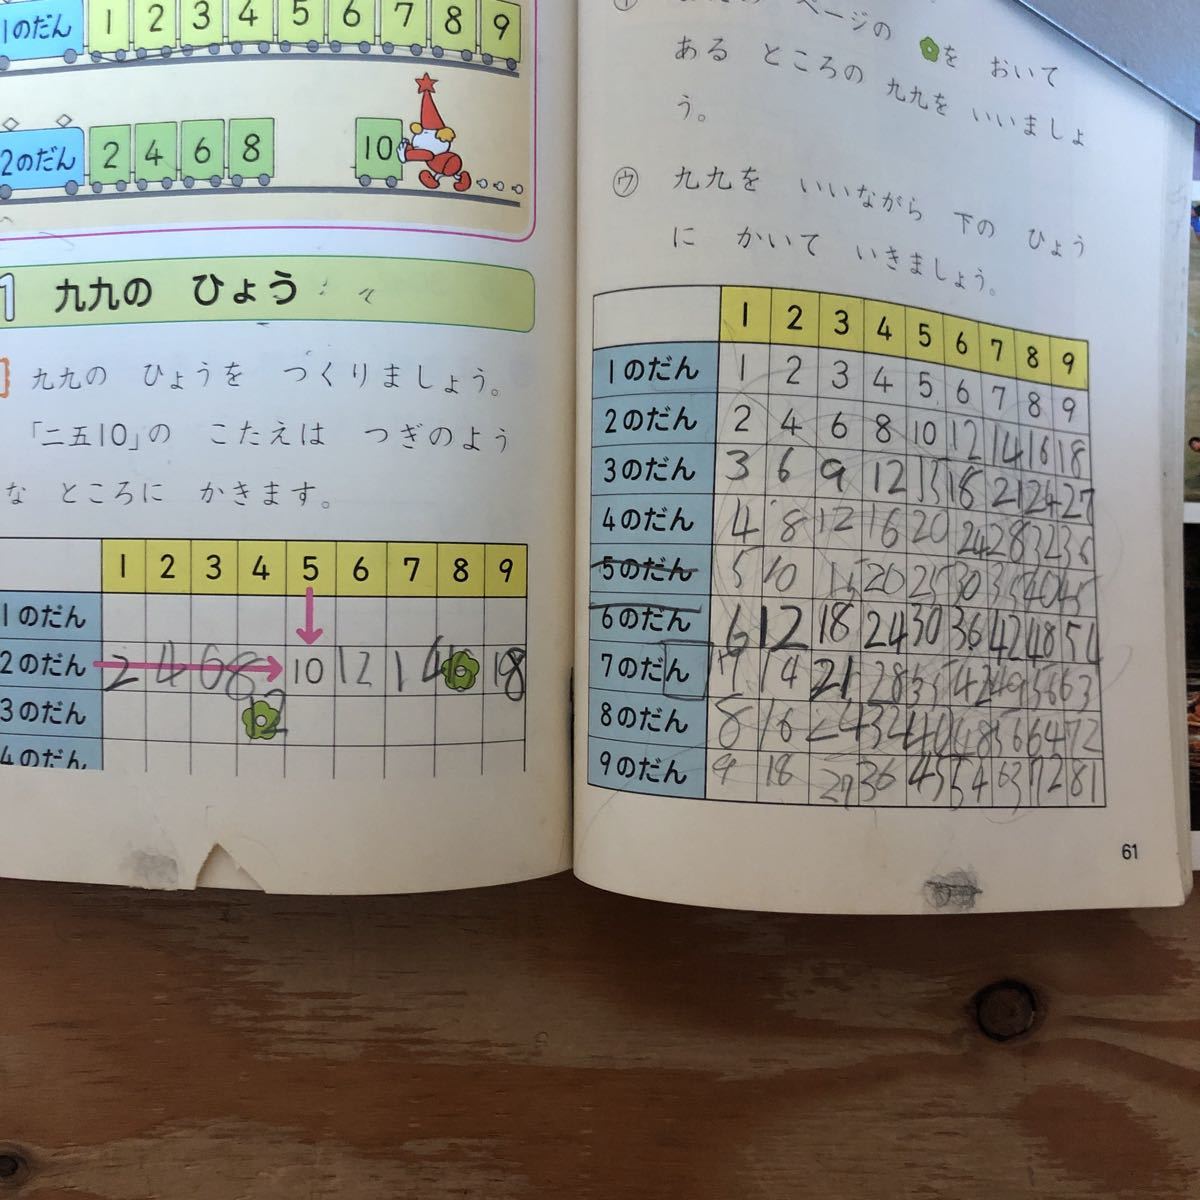 1のだん 1 2 3 4 5 6 7 8 9
2のだん 2 4 6 8 10
1 九九の ひょう
九九の ひょうを つくりましょう。
「二五10」の こたえは つぎのよう
な ところに かきます。
1 2 3 4 5 6 7 8 9
1のだん
2のだん 2 4 6 8 10 12 14 16 18
3のだん 12
4のだん
ページの を おいて
ある ところの 九九を いいましょ
う。
㋒ 九九を いいながら 下の ひょう
に かいて いきましょう。
1 2 3 4 5 6 7 8 9
1のだん 1 2 3 4 5 6 7 8 9
2のだん 2 4 6 8 10 12 14 16 18
3のだん 3 6 9 12 15 18 21 24 27
4のだん 4 8 12 16 20 24 28 32 36
5のだん 5 10 15 20 25 30 35 40 45
6のだん 6 12 18 24 30 36 42 48 54
7のだん 7 14 21 28 35 42 49 56 63
8のだん 8 16 24 32 40 48 56 64 72
9のだん 9 18 27 36 45 54 63 72 81
61